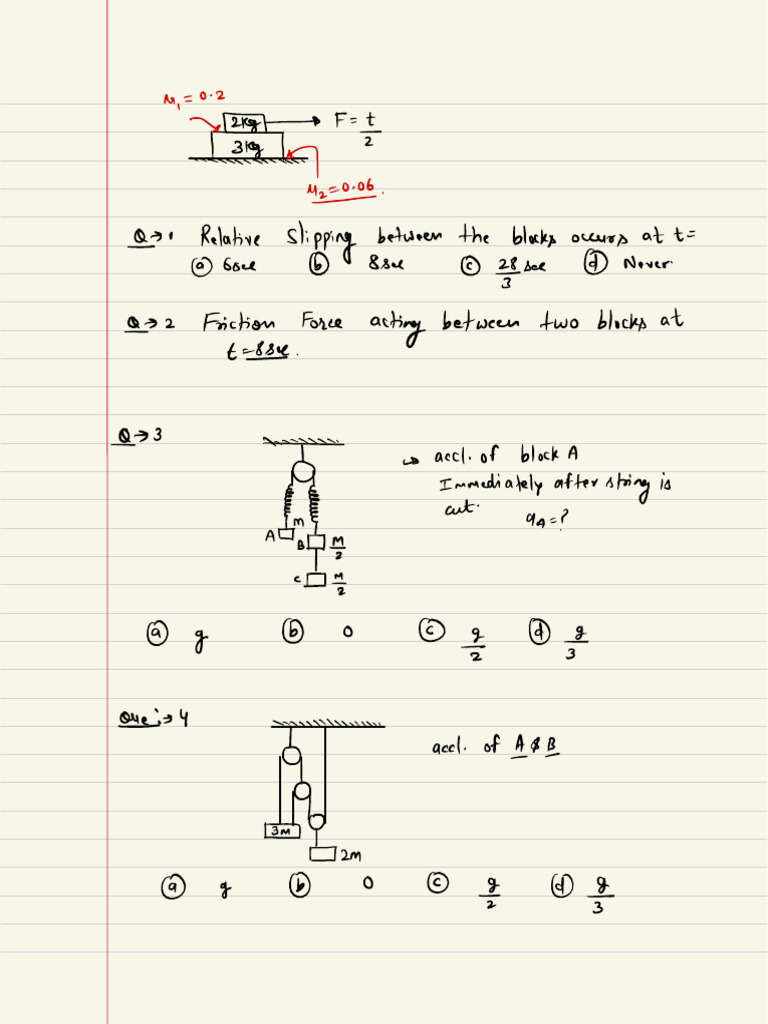 μ₁ = 0.2
2kg → F = t/2
3kg
μ₂ = 0.06.
Q→1 Relative Slipping between the blocks occurs at t=
(a) 6sec (b) 8sec (c) 28/3 sec (d) Never.
Q→2 Friction Force acting between two blocks at
t=8sec.
Q→3
→ accl. of block A
Immediately after string is
cut. a_A=?
A m
B M/2
C M/2
(a) g (b) 0 (c) g/2 (d) g/3
Que:→4
accl. of A & B
3m
2m
(a) g (b) 0 (c) g/2 (d) g/3